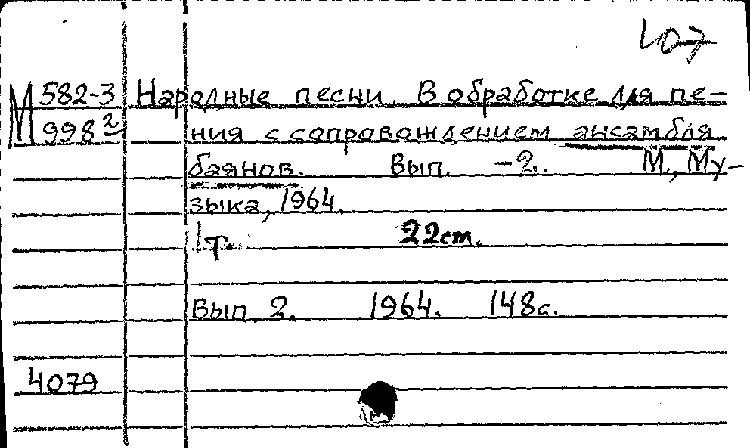 107
М 582-3 Народные песни. В обработке для пе-
998² ния с сопровождением ансамбля
баянов. Вып. -2. М., Му-
зыка, 1964.
1 т. 22 cm.
Вып. 2. 1964. 148 с.
4079